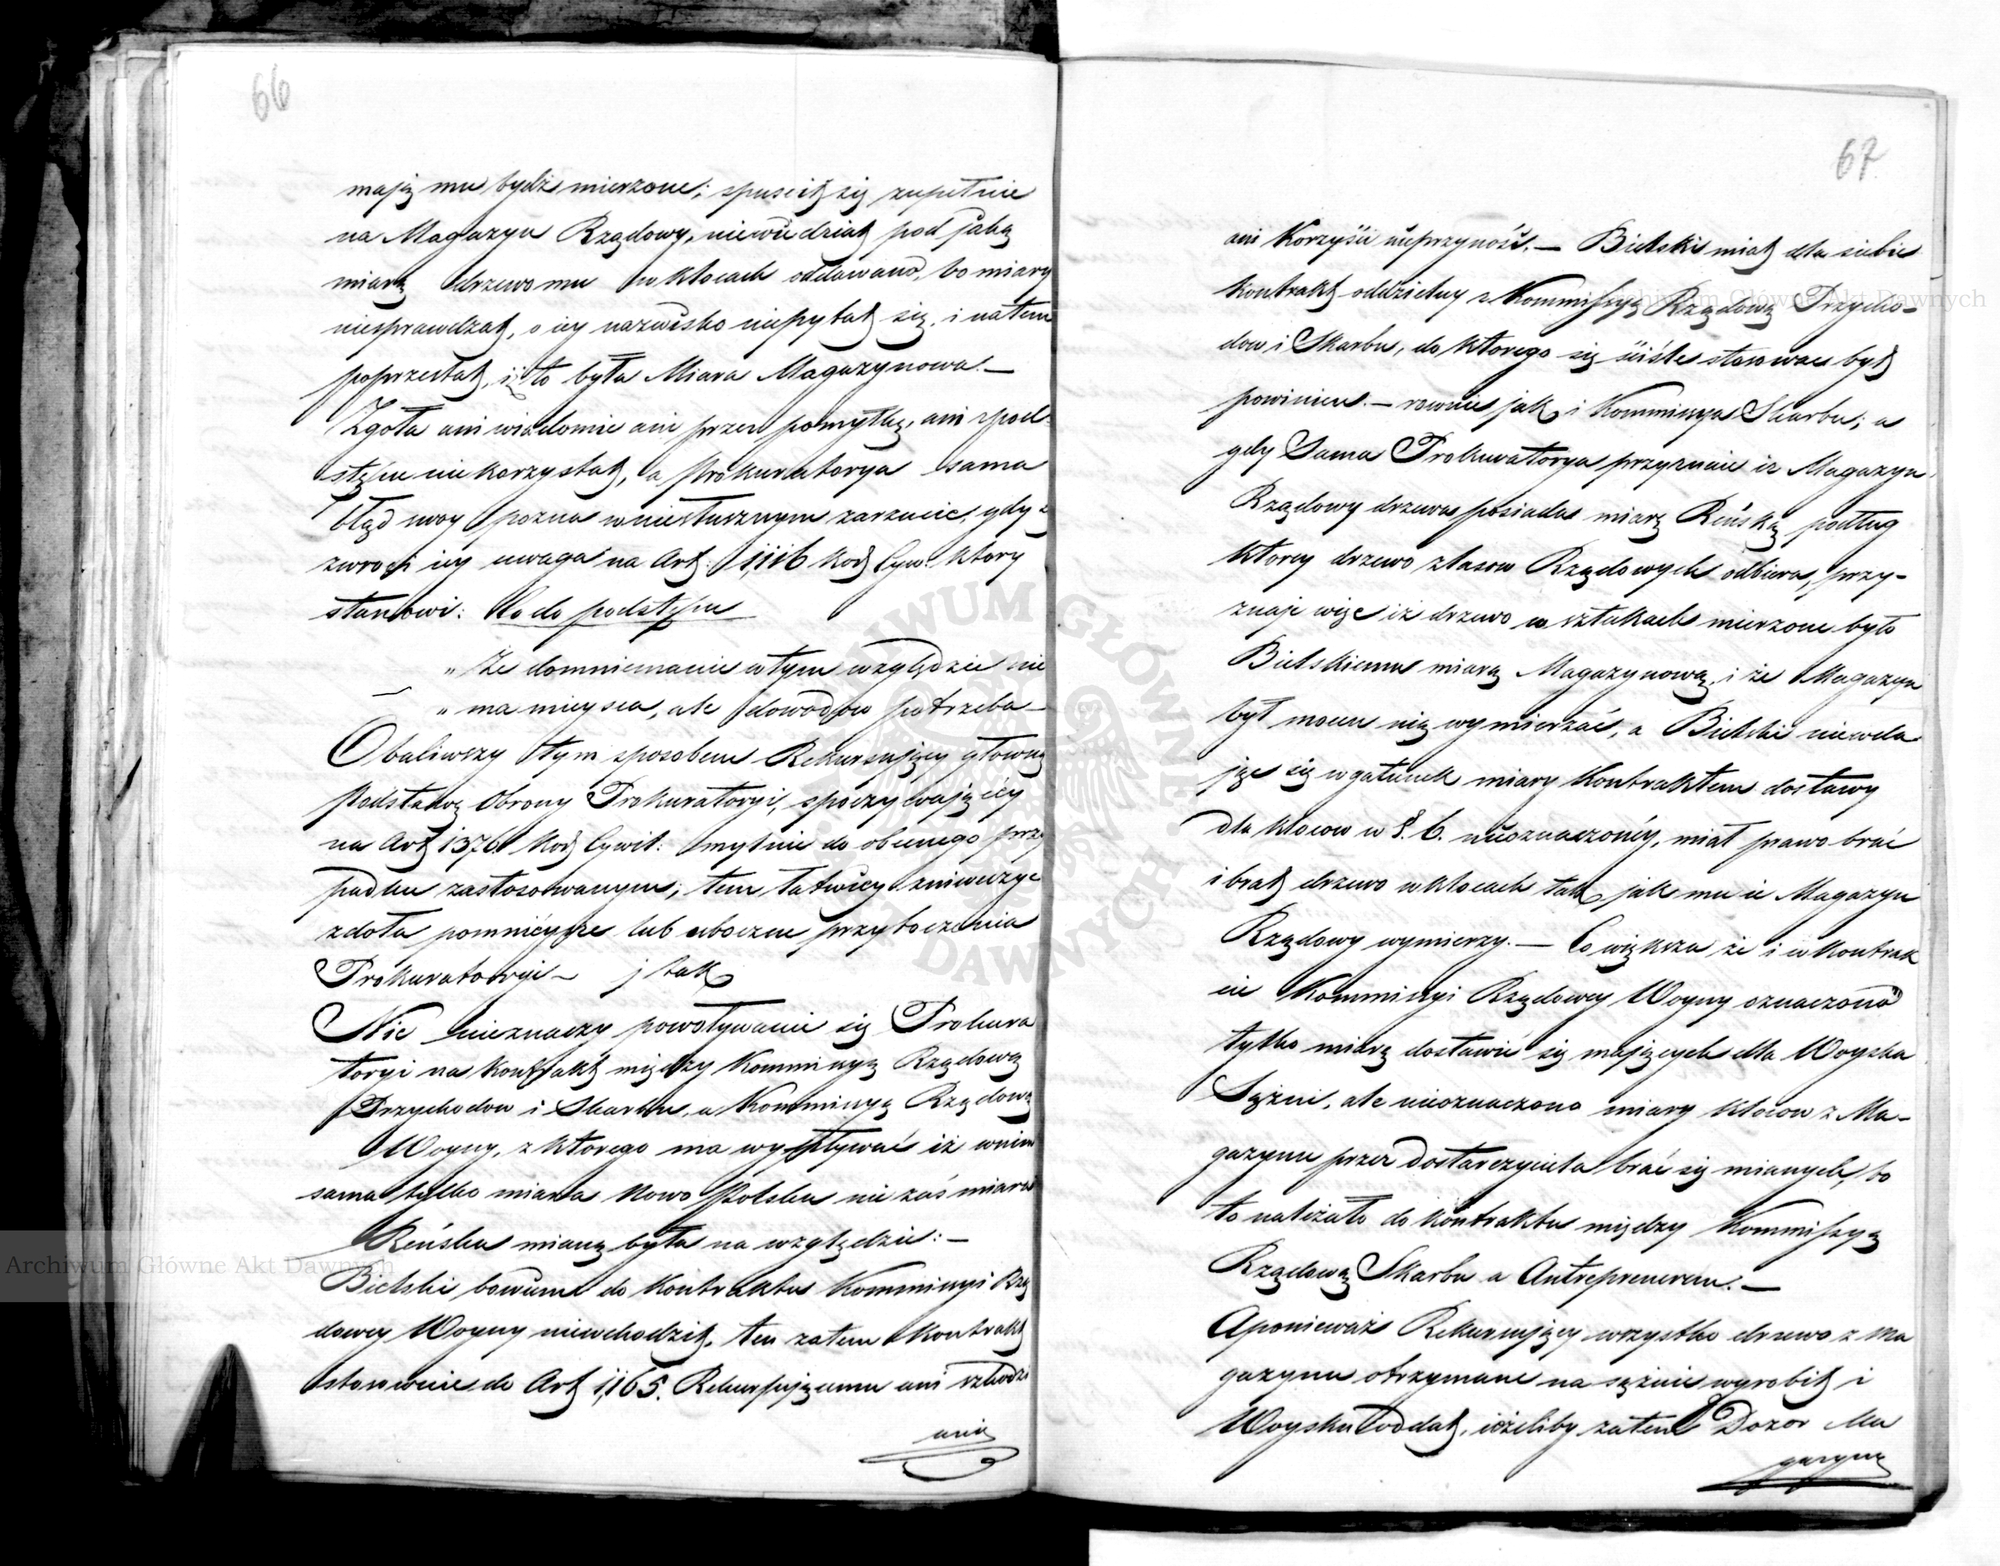 66
mają mu bydź mierzone; spuścił się zupełnie
na Magazyn Rządowy, niewiedział pod jaką
miarą drzewo mu w klocach oddawano, bo miary
niesprawdzał, o iey nazwisko niepytał się, i natem
poprzestał, iż to była Miara Magazynowa. —
Zgoła ani wiadomie ani przez pomyłkę, ani zpod-
stępu nie korzystał, a Prokuratorya sama
błąd swoy pozna w niesłusznym zarzucie, gdy
zwroci iey uwaga na Art: 1116 Kod Cyw: ktory
stanowi: Co do podstępu
„ Że domniemanie w tym względzie nie
„ ma mieysca, ale dowodow potrzeba —
Obaliwszy tym sposobem Rekursujący głowną
Podstawę Obrony Prokuratoryi, spoczywającéy
na Art 1376 Kod Cywil: mylnie do obecnego przy
padku zastosowanym; tem łatwiey zniweczyć
zdoła pomnieysze lub uboczne przytoczenia
Prokuratoryi — j tak
Nic nieznaczy powoływanie się Prokura
toryi na Kontrakt między Kommissyą Rządową
Przychodow i Skarbu, a Kommissyą Rządową
Woyny, z ktorego ma wypływać iż w nim
sama tylko miara Nowo Polska nie zaś miara
Reńska mianą była na względzie: —
Bielski bowiem do Kontraktu Kommissyi Rzą
dowey Woyny niewchodził, ten zatem Kontrakt
stosownie do Art 1165. Rekursującemu ani szkodzi
ania
67
ani Korzyści nieprzynosi. — Bielski miał dla siebie
Kontrakt oddzielny z Kommissyą Rządową Przycho-
dow i Skarbu, do ktorego się ściśle stosować był
powinien. — rownie jak i Kommissya Skarbu; a
gdy Sama Prokuratorya przyznaie iż Magazyn
Rządowy drzewa posiada miarę Reńską podług
ktorey drzewo z lasow Rządowych odbiera, przy-
znaje więc iż drzewo w sztukach mierzone było
Bielskiemu miarą Magazynową, i że Magazyn
był mocen nią wymierzać, a Bielski niewda
jąc się w gatunek miary Kontraktem dostawy
dla klocow w §. 6. nieoznaczonéy, miał prawo brać
i brał drzewo w klocach tak, jak mu ie Magazyn
Rządowy wymierzy. — Co większa że i w Kontrak
cie Kommissyi Rządowey Woyny oznaczono
tylko miarę dostawić się mających dla Woyska
Sążni, ale nieoznaczono miary klocow z Ma-
gazynu przez Dostarczyciela brać się mianych, bo
to należało do Kontraktu między Kommissyą
Rządową Skarbu a Antreprenerem. —
A ponieważ Rekursujący wszystko drzewo z Ma
gazynu otrzymane na sążnie wyrobił i
Woysku oddał, ieżeliby zatem Dozor Ma
gazynu